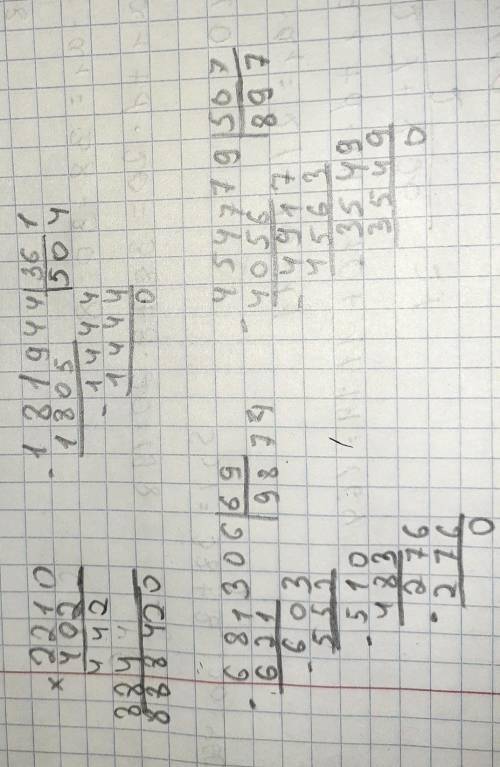 × 2210
402
442
884
888420
- 181944 | 361
1805 | 504
- 1444
1444
0
- 681306 | 69
621 | 9874
- 603
552
- 510
483
- 276
276
0
- 454779 | 507
4056 | 897
- 4917
4563
3549
3549
0